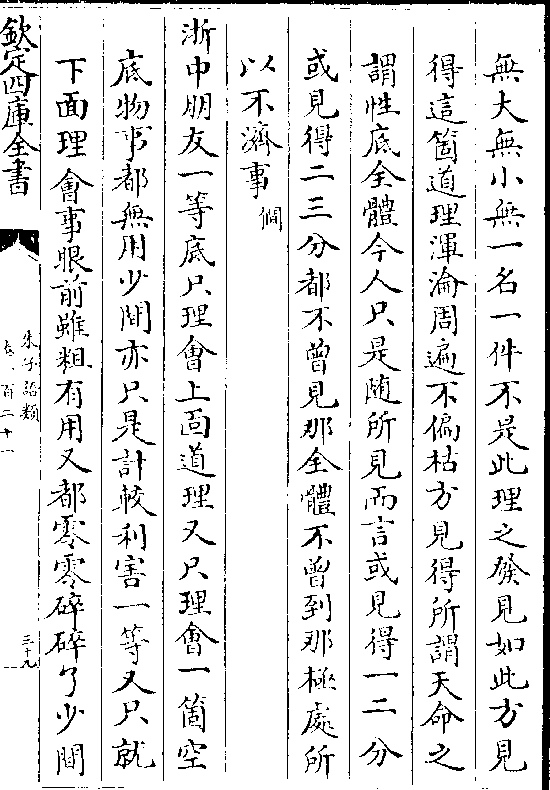 無大無小無一名一件不是此理之發見如此方見
得這箇道理渾淪周遍不偏枯方見得所謂天命之
謂性底全體今人只是随所見而言或見得一二分
或見得二三分都不曽見那全體不曽到那極處所
以不濟事僩
浙中朋友一等底只理會上面道理又只理會一箇空
底物事都無用少間亦只是計較利害一等又只就
下面理會事眼前雖粗有用又都零零碎碎了少間
欽定四庫全書
朱子語類
卷一百二十一
三十九